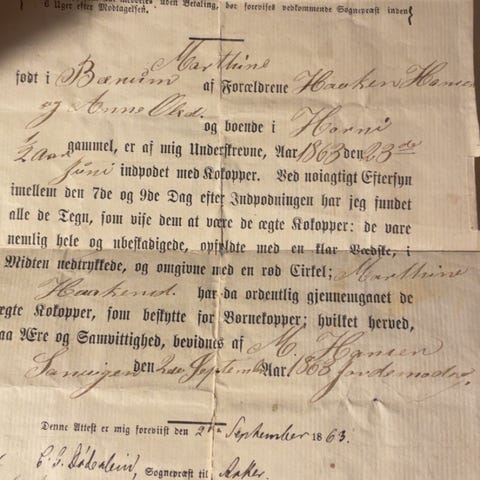 meddeles uden Betaling, bør forevises vedkommende Sognepræst inden
6 Uger efter Modtagelsen.
Marthine
født i Bærum af Forældrene Haaken Hansen
og Anne Olsd.
og boende i
1/2 Aar gammel, er af mig Underskrevne, Aar 1863 den 23de
Juni indpodet med Kokopper. Ved nøiagtigt Eftersyn
imellem den 7de og 9de Dag efter Indpodningen har jeg fundet
alle de Tegn, som vise dem at være de ægte Kokopper: de vare
nemlig hele og ubeskadigede, opfyldte med en klar Vædske, i
Midten nedtrykkede, og omgivne med en rød Cirkel; Marthine
Haakensd. har da ordentlig gjennemgaaet de
ægte Kokopper, som beskytte for Børnekopper; hvilket herved,
paa Ære og Samvittighed, bevidnes af M. Hansen
den 2den September Aar 1863 Jordemoder.
Denne Attest er mig foreviist den 2 September 1863.
Sognepræst til Asker.